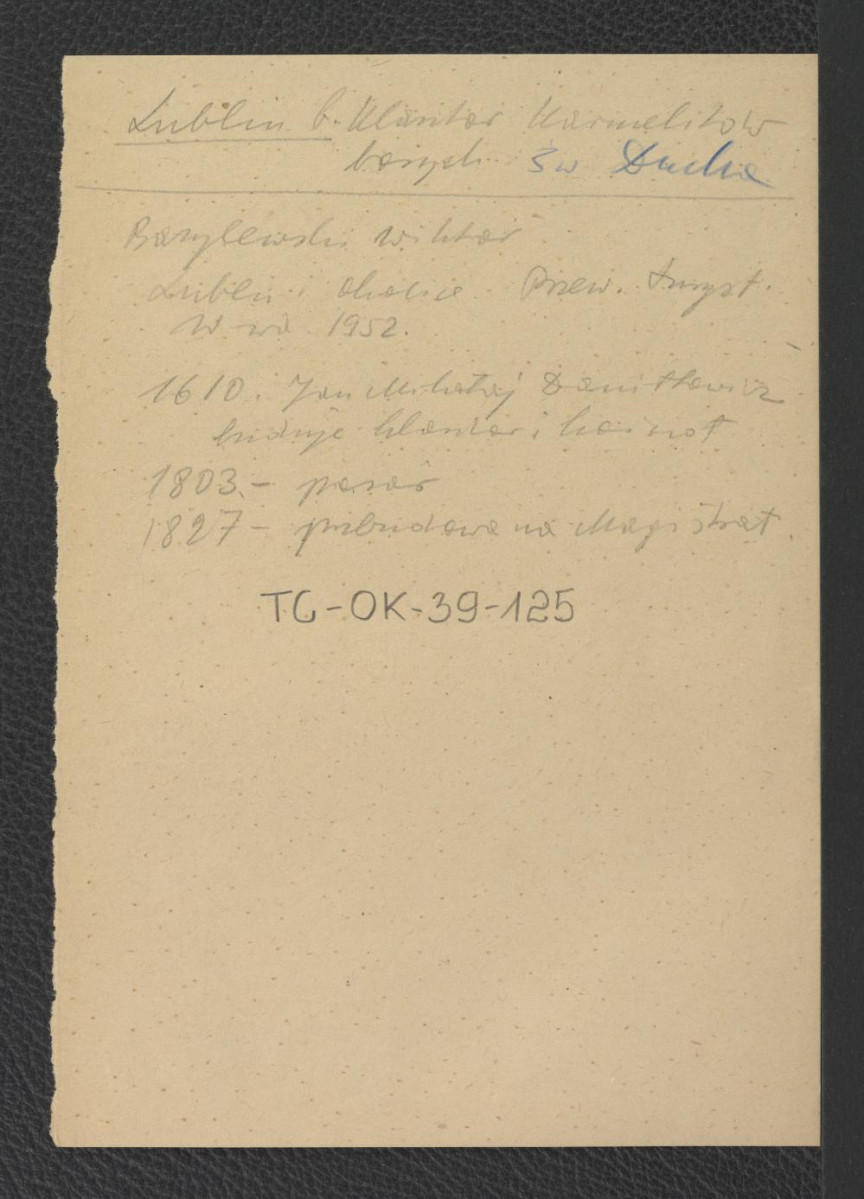 Lublin b. Klasztor Karmelitów
bosych św Ducha
Lublin i okolice Przew. turyst.
W-wa 1952.
1610. Jan Mikołaj Daniłowicz
buduje klasztor i kościoł
1803 – pożar
1827 – przebudowa na Magistrat.
TG-OK-39-125